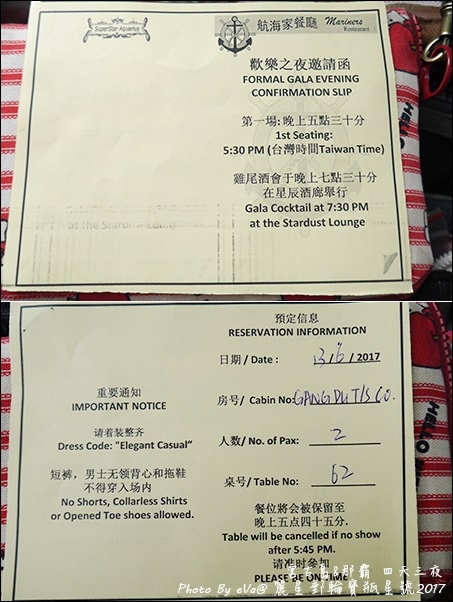 SuperStar Aquarius
航海家餐廳 Mariners
Restaurant
歡樂之夜邀請函
FORMAL GALA EVENING
CONFIRMATION SLIP
第一場: 晚上五點三十分
1st Seating:
5:30 PM (台灣時間Taiwan Time)
雞尾酒會于晚上七點三十分
在星辰酒廊舉行
Gala Cocktail at 7:30 PM
at the Stardust Lounge
at the Stardust Lounge
HELLO
重要通知
IMPORTANT NOTICE
请着装整齐
Dress Code: "Elegant Casual"
短裤，男士无领背心和拖鞋
不得穿入场内
No Shorts, Collarless Shirts
or Opened Toe shoes allowed.
預定信息
RESERVATION INFORMATION
日期 / Date : 3/6/ 2017
房号/ Cabin No:
人数/ No. of Pax: 2
桌号/ Table No: 62
餐位將会被保留至
晚上五点四十五分.
Table will be cancelled if no show
after 5:45 PM.
请准时参加
PLEASE BE ON TIME.
HELLO
宮古島&那霸 四天三夜
Photo By eVa@ 麗星郵輪寶瓶星號2017